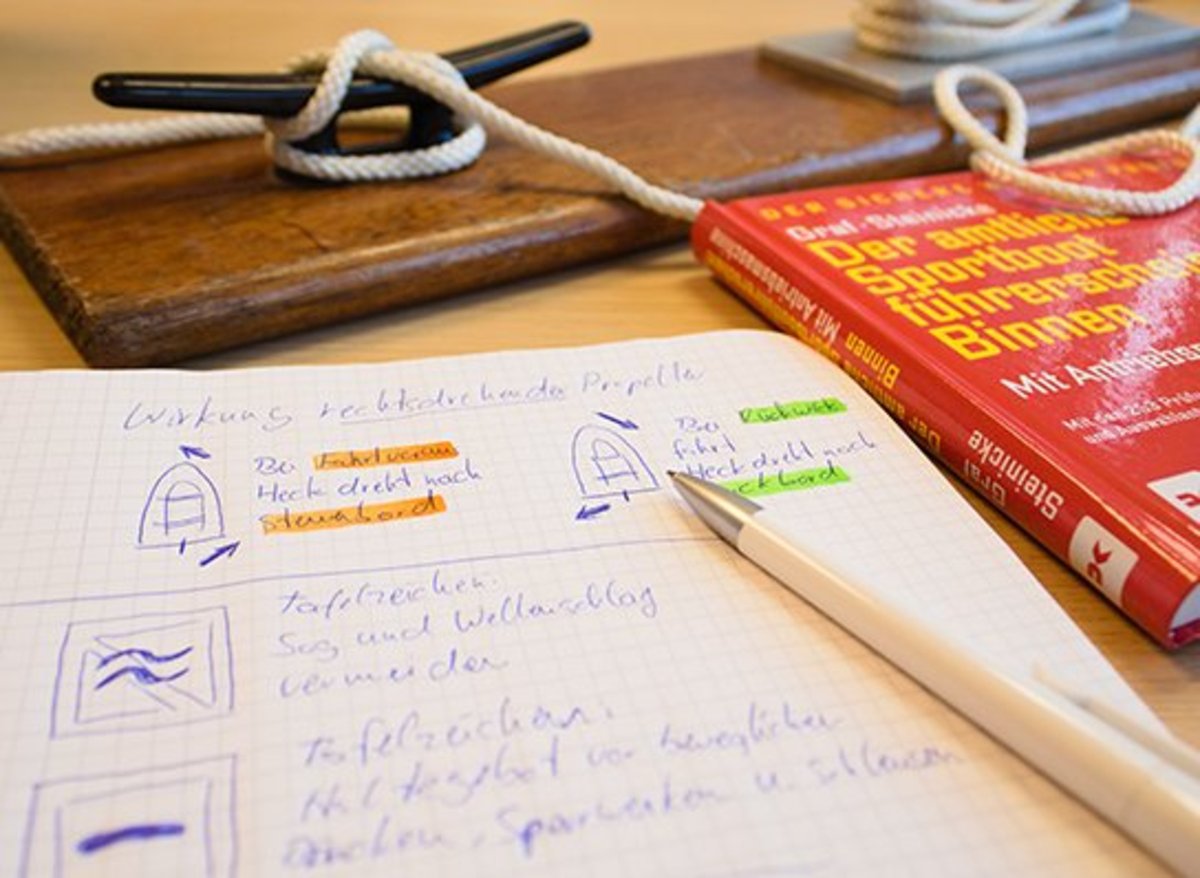 DER SICHERE
Graf · Steinicke
Der amtliche
Sportboot
führerschein
Binnen
Mit Antriebs
Mit Antriebsmaschine
Binnen
Der
Graf
Steinicke
DK
Wirkung rechtsdrehender Propeller
Bei Fahrtvoraus
Heck dreht nach
Steuerbord
Bei Rückwärts
fahrt
Heck dreht nach
ckbord
Tafelzeichen:
Sog und Wellenschlag
vermeiden
Tafelzeichen:
Haltegebot vor beweglichen
Brücken, Sperrwerken u. Schleusen